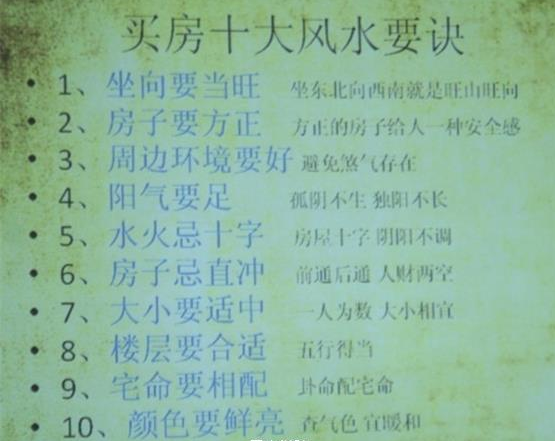 买房十大风水要诀
• 1、坐向要当旺 坐东北向西南就是旺山旺向
• 2、房子要方正 方正的房子给人一种安全感
• 3、周边环境要好 避免煞气存在
• 4、阳气要足 孤阴不生 独阳不长
• 5、水火忌十字 房屋十字 阴阳不调
• 6、房子忌直冲 前通后通 人财两空
• 7、大小要适中 一人为数 大小相宜
• 8、楼层要合适 五行得当
• 9、宅命要相配 卦命配宅命
• 10、颜色要鲜亮 查气色 宜暖和